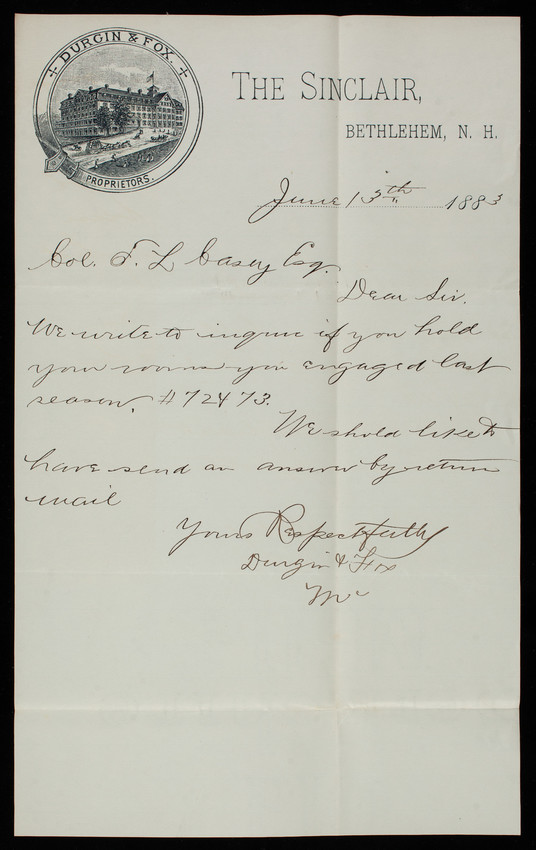 DURGIN & FOX.
PROPRIETORS.
THE SINCLAIR,
BETHLEHEM, N. H.
June 13th 1883
Col. T. L Casey Esq.
Dear Sir.
We write to inquire if you hold
your rooms you engaged last
season, # 72 & 73.
We shold like to
have send an answer by return
mail
Yours Respectfully
Durgin & Fox